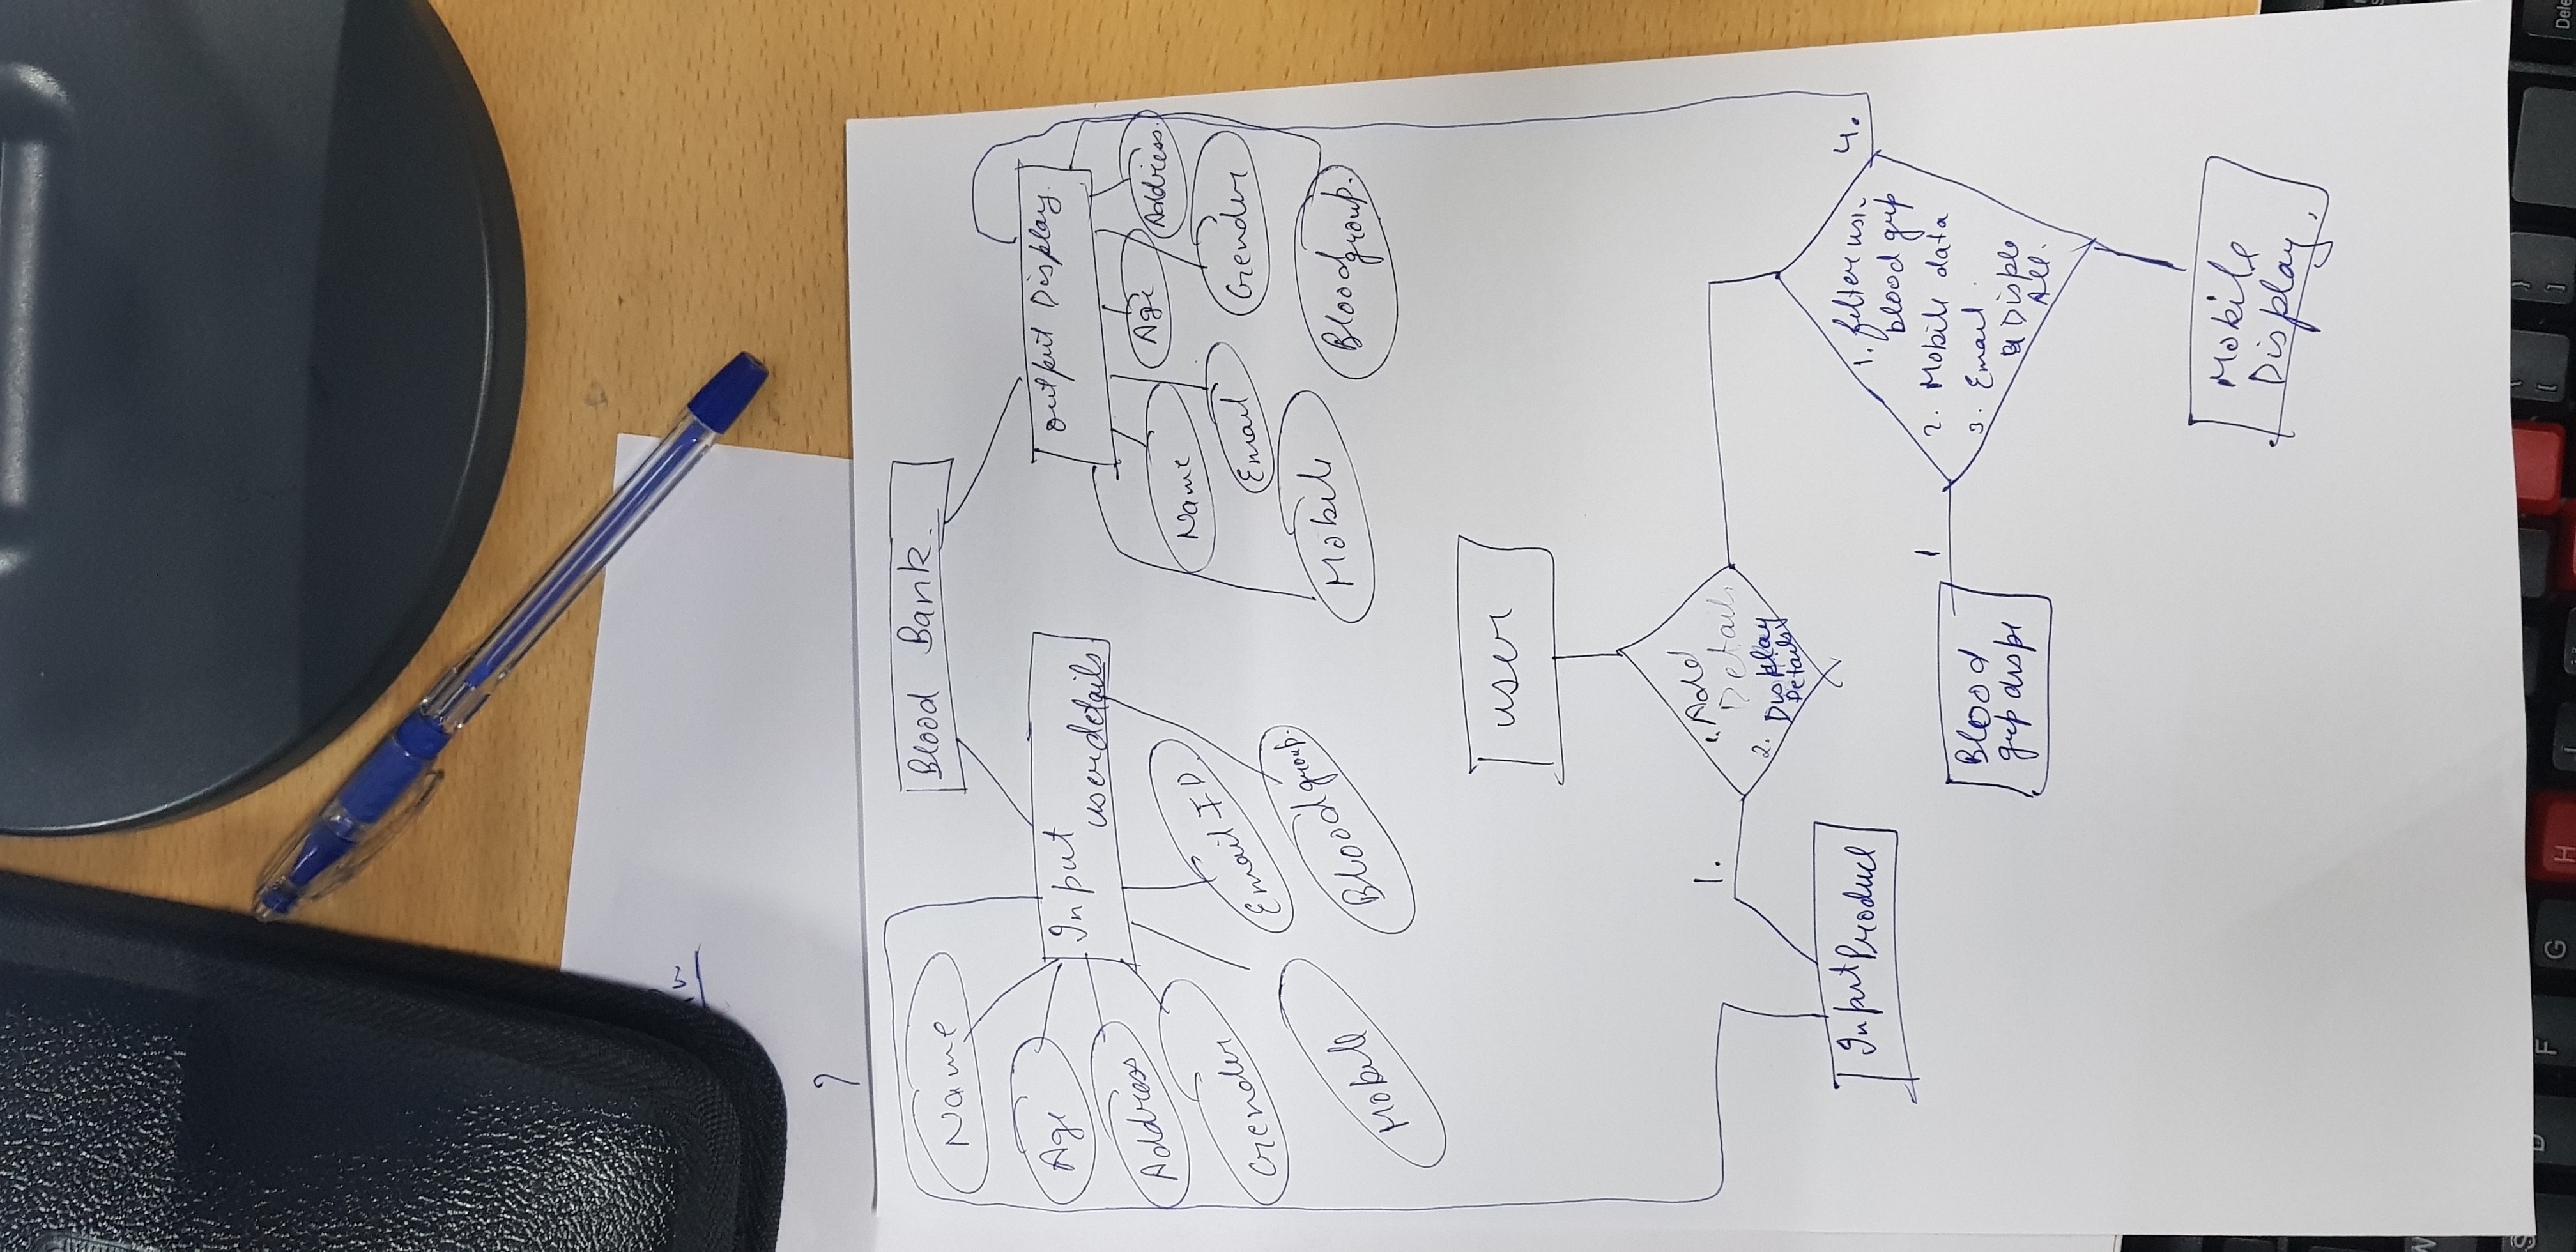 ?
Blood Bank.
Name
Age
Address
Gender
Mobile
Input
userdetails
Email ID
Blood group.
output Display.
Name
Age
Address.
Email
Gender
Mobile
Blood group.
user
1. Add
Details
2. Display
Details
1.
Input Product
1. filter usi-
blood grp
2. Mobile data
3. Email
4 Displ
All.
4.
1
Blood
grp displ
Mobile
Display.
W
S
D
F
G
H
{
[
}
]
Dele